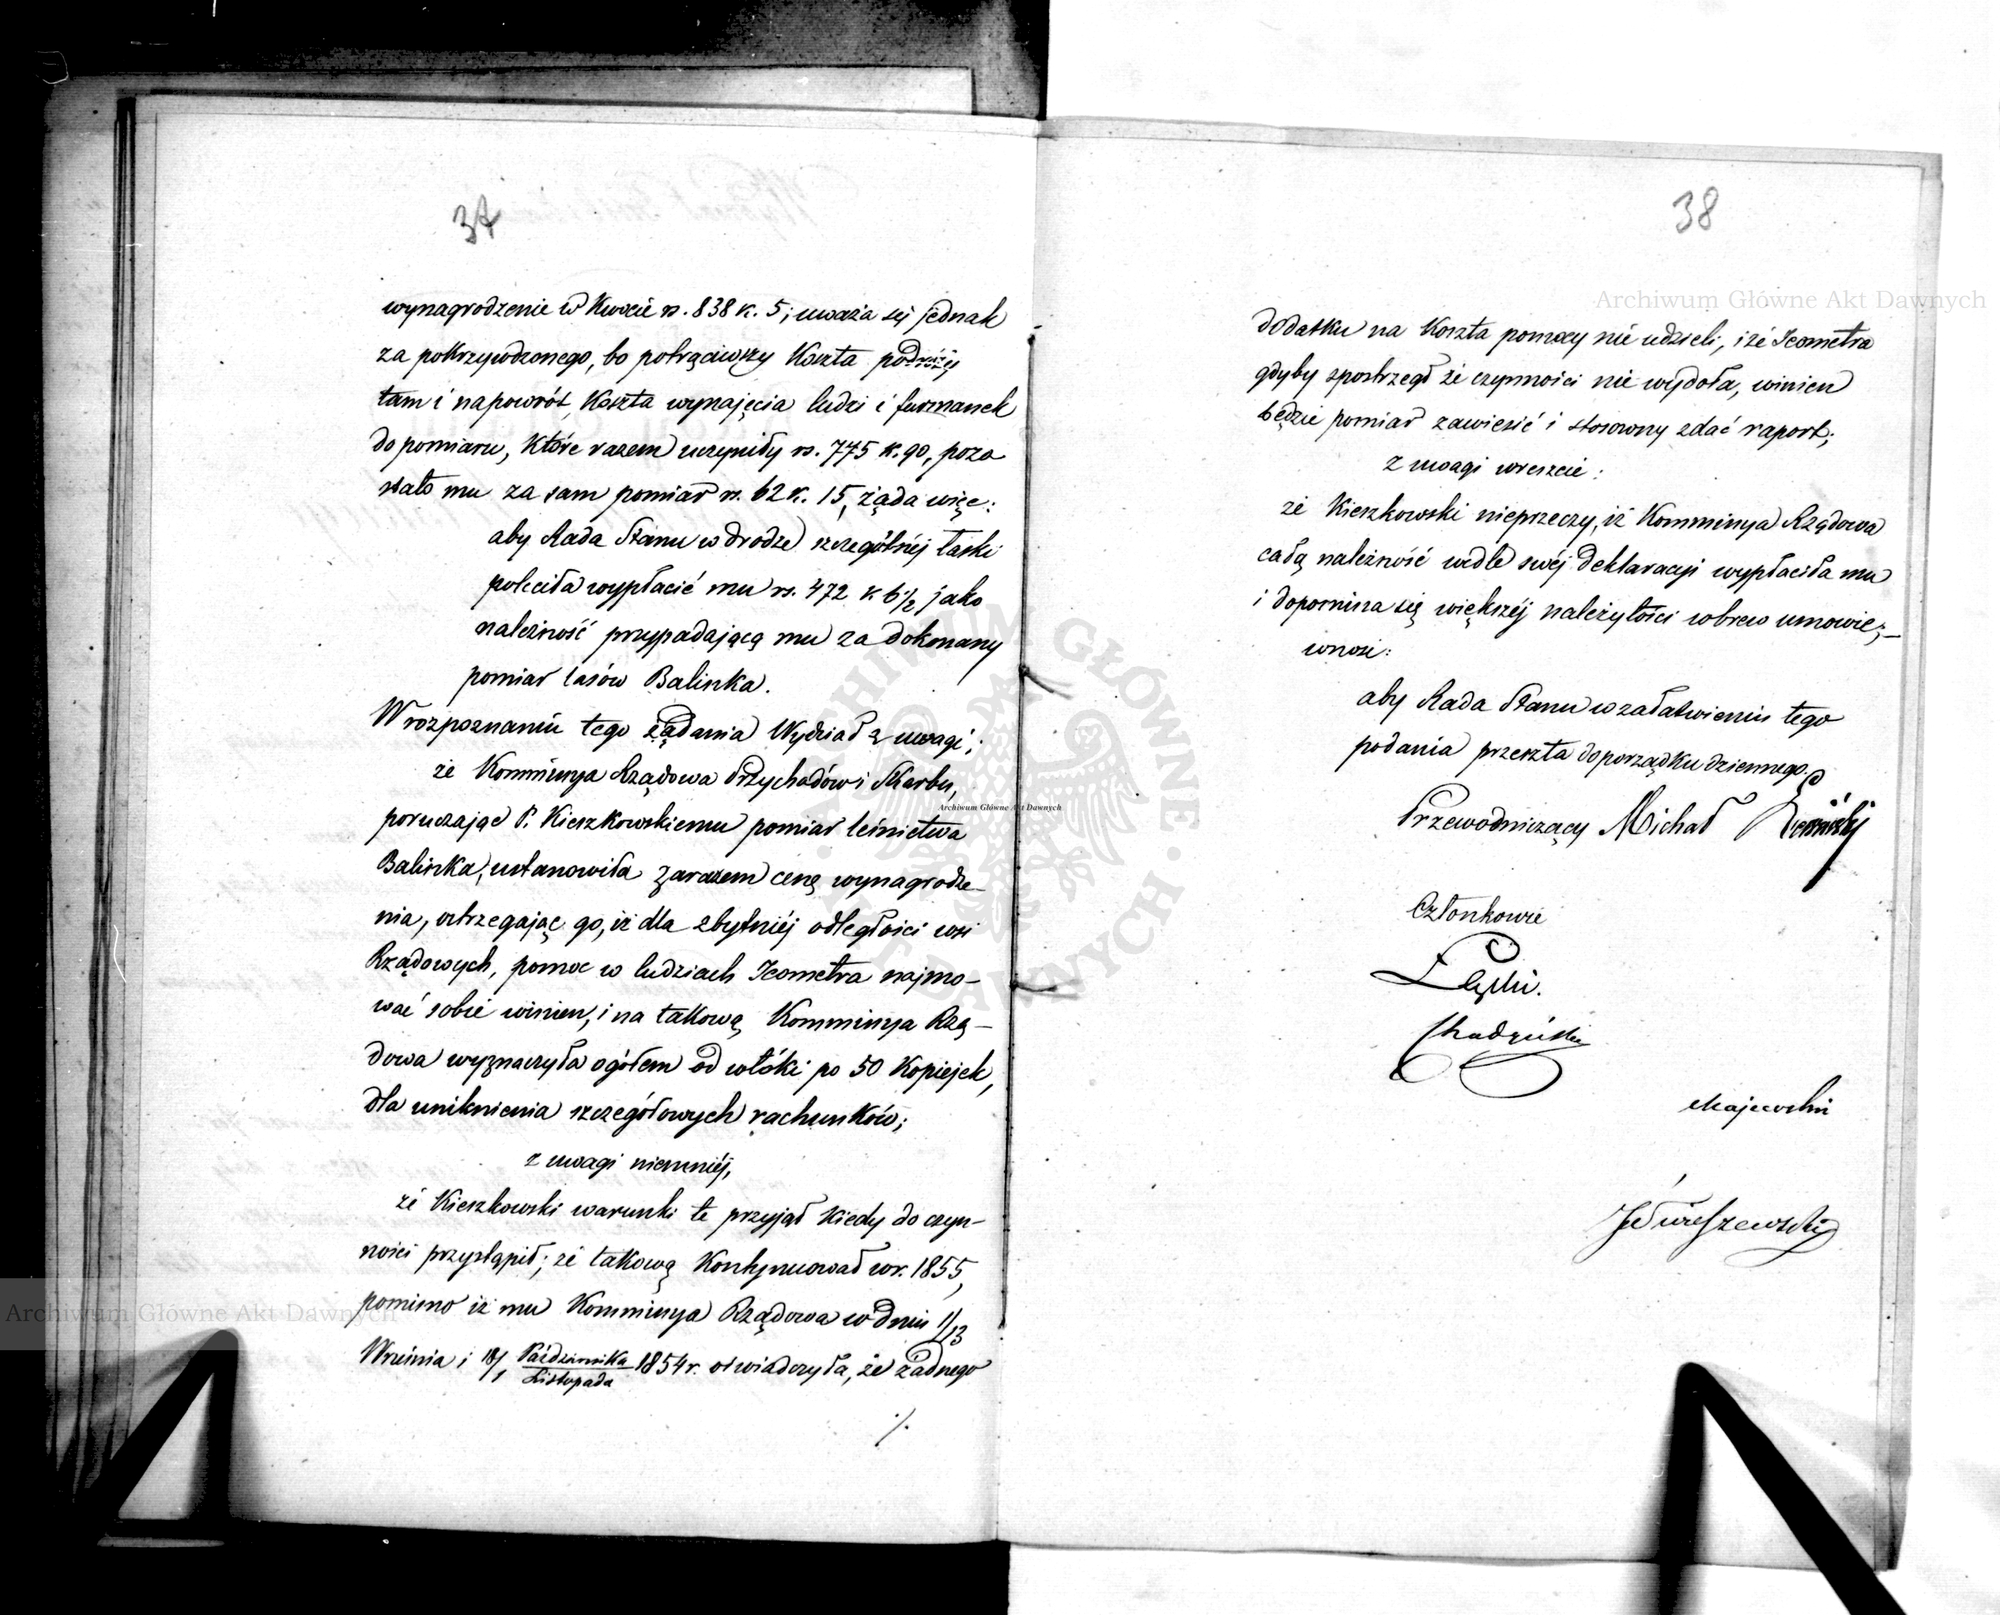 37
wynagrodzenie w kwocie rs. 838 k. 5; uważa się jednak
za pokrzywdzonego, bo potrąciwszy koszta podróży
tam i napowrót, koszta wynajęcia ludzi i furmanek
do pomiaru, które razem uczyniły rs. 775 k. 90, pozo
stało mu za sam pomiar rs. 62 k. 15, żąda więc:
aby Rada Stanu w drodze szczególnéj łaski
poleciła wypłacić mu rs. 472 k 6 1/2 jako
należność przypadającą mu za dokonany
pomiar lasów Balinka.
W rozpoznaniu tego żądania Wydział z uwagi;
że Kommissya Rządowa Przychodów i Skarbu,
poruczając P. Kieszkowskiemu pomiar leśnictwa
Balinka, ustanowiła zarazem cenę wynagrodze-
nia, ostrzegając go, iż dla zbytniéj odległości wsi
Rządowych, pomoc w ludziach Jeometra najmo-
wać sobie winien, i na takową Kommissya Rzą-
dowa wyznaczyła ogółem od włóki po 50 kopiejek,
dla uniknienia szczegółowych rachunków;
z uwagi niemniéj,
że Kieszkowski warunki te przyjął kiedy do czyn-
ności przystąpił; że takową kontynuował w r. 1855,
pomimo iż mu Kommissya Rządowa w dniu 1/13
Września i 18/1 Października/Listopada 1854 r. oświadczyła, że żadnego
./.
38
dodatku na koszta pomocy nie udzieli, i że Jeometra
gdyby spostrzegł że czynności nie wydoła, winien
będzie pomiar zawiesić i stosowny zdać raport;
z uwagi wreszcie:
że Kieszkowski nieprzeczy, iż Kommissya Rządowa
całą należność wedle swéj deklaracyi wypłaciła mu
i dopomina się większéj należytości wbrew umowie;—
wnosi:
aby Rada Stanu w załatwieniu tego
podania przeszła do porządku dziennego.
Przewodniczący Michał
Członkowie
Majewski
Archiwum Główne Akt Dawnych
Archiwum Główne Akt Dawnych
Archiwum Główne Akt Dawnych
ARCHIWUM GŁÓWNE AKT DAWNYCH